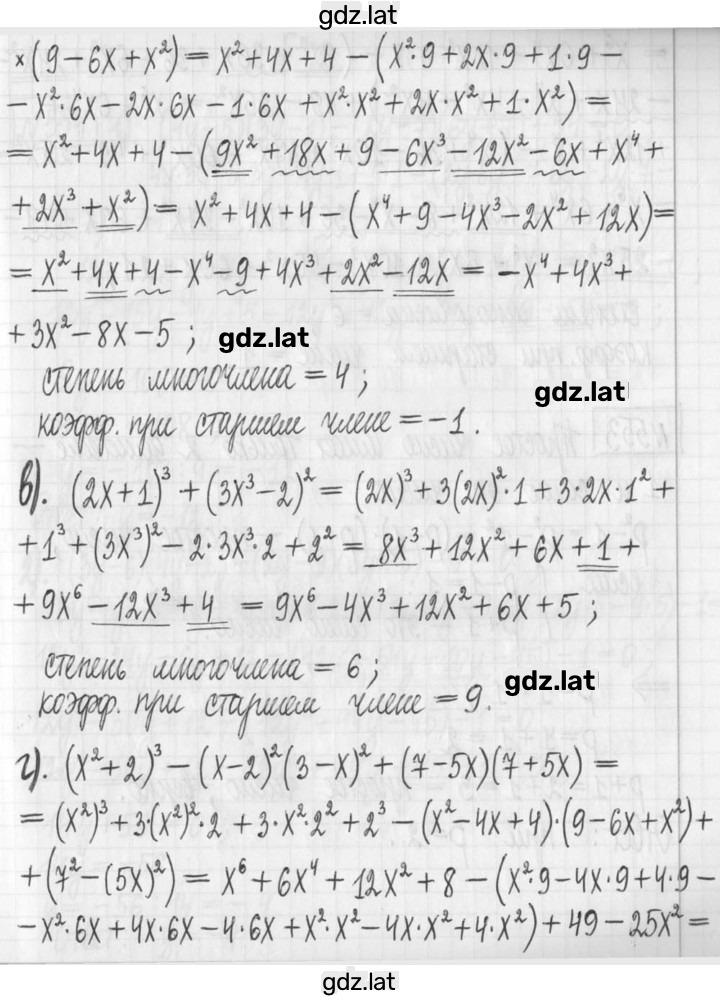 gdz.lat
×(9−6x+x²)= x²+4x+4−(x²·9+2x·9+1·9−
−x²·6x−2x·6x−1·6x+x²·x²+2x·x²+1·x²)=
=x²+4x+4−(9x²+18x+9−6x³−12x²−6x+x⁴+
+2x³+x²)= x²+4x+4−(x⁴+9−4x³−2x²+12x)=
=x²+4x+4−x⁴−9+4x³+2x²−12x = −x⁴+4x³+
+3x²−8x−5 ; gdz.lat
степень многочлена = 4 ; gdz.lat
коэфф. при старшем члене = −1.
в). (2x+1)³+(3x³−2)² = (2x)³+3(2x)²·1+3·2x·1²+
+1³+(3x³)²−2·3x³·2+2² = 8x³+12x²+6x+1+
+9x⁶−12x³+4 = 9x⁶−4x³+12x²+6x+5 ;
степень многочлена = 6 ; gdz.lat
коэфф. при старшем члене = 9.
г). (x²+2)³−(x−2)²(3−x)²+(7−5x)(7+5x) =
=(x²)³+3·(x²)²·2+3·x²·2²+2³−(x²−4x+4)·(9−6x+x²)+
+(7²−(5x)²)= x⁶+6x⁴+12x²+8−(x²·9−4x·9+4·9−
−x²·6x+4x·6x−4·6x+x²·x²−4x·x²+4·x²)+49−25x²=
gdz.lat